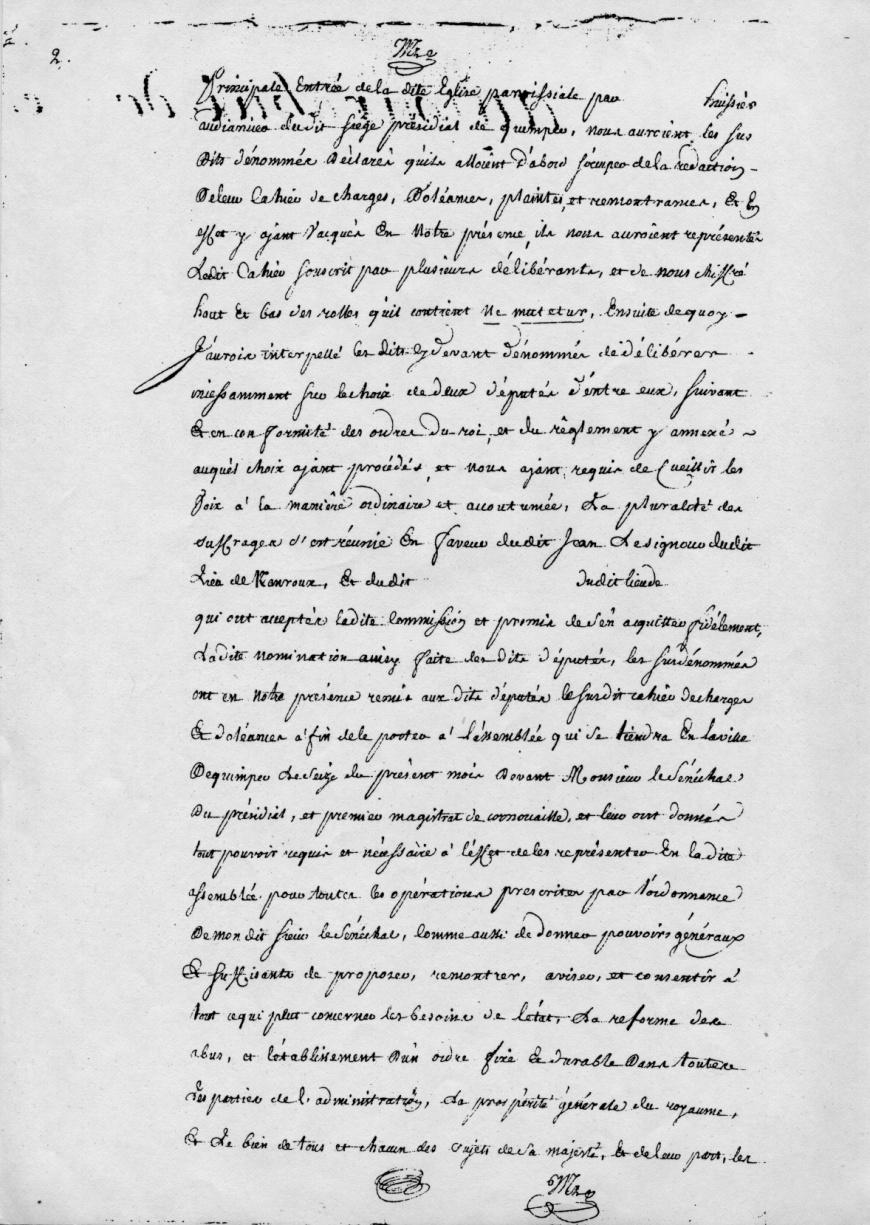 2.
Principale Entrée de la dite Eglise parroissiale par huissier
audiancier dudit siege présidial de quimper, nous auroient les sus
Dits dénommés Déclarés qu'ils alloient d'abord s'occuper de la rédaction
De leur Cahier de charges, Doléances, plaintes, et remontrances, Et En
effet y ajant Vacqués En Notre présence, ils nous auroient représenté
Ledit Cahier souscrit par plusieurs délibérants, et de nous chiffré
haut Et bas des rolles qu'il contient Ne mutetur, Ensuite de quoy
J'aurois interpellé les dits cy devant dénommés de délibérer
incessamment sur le choix de deux députés d'entre eux, suivant
Et en conformité des ordres du roi, et du règlement y annexé
auquel choix ajant procédés, et nous ajant requis de Cueillir les
Voix à la manière ordinaire et accoutumée, La pluralité des
suffrages s'est réunie En faveur dudit Jean Le signour dudit
Lieu de Kanroux, Et dudit dudit lieu de
qui ont acceptés ladite Commission et promis de s'en acquitter fidélement,
La dite nomination ainsy faite des dits députés, les susdénommés
ont en Notre présence remis aux dits députés le susdit cahier de charges
Et doléances afin de le porter à l'éssemblée qui se tiendra En la ville
De quimper Le seize du présent mois Devant Monsieur le Sénéchal
Du présidial, et premier magistrat de cornouaille, et leur ont donnés
tout pouvoir requis et nécéssaire à l'effet de les représenter En la dite
assemblée pour toutes les opérations prescrites par l'ordonnance
De mon dit sieur le Sénéchal, Comme aussi de donner pouvoirs généraux
Et suffisants de proposer, remontrer, aviser, et consentir à
tout ce qui peut concerner les besoins de l'état, La reforme des
abus, et l'établissement D'un ordre fixe Et durable Dans toutes
Les parties de l'administration, La prospérité générale du royaume,
Et Le bien de tous et chacun des sujets de sa majesté, Et de leur part, les